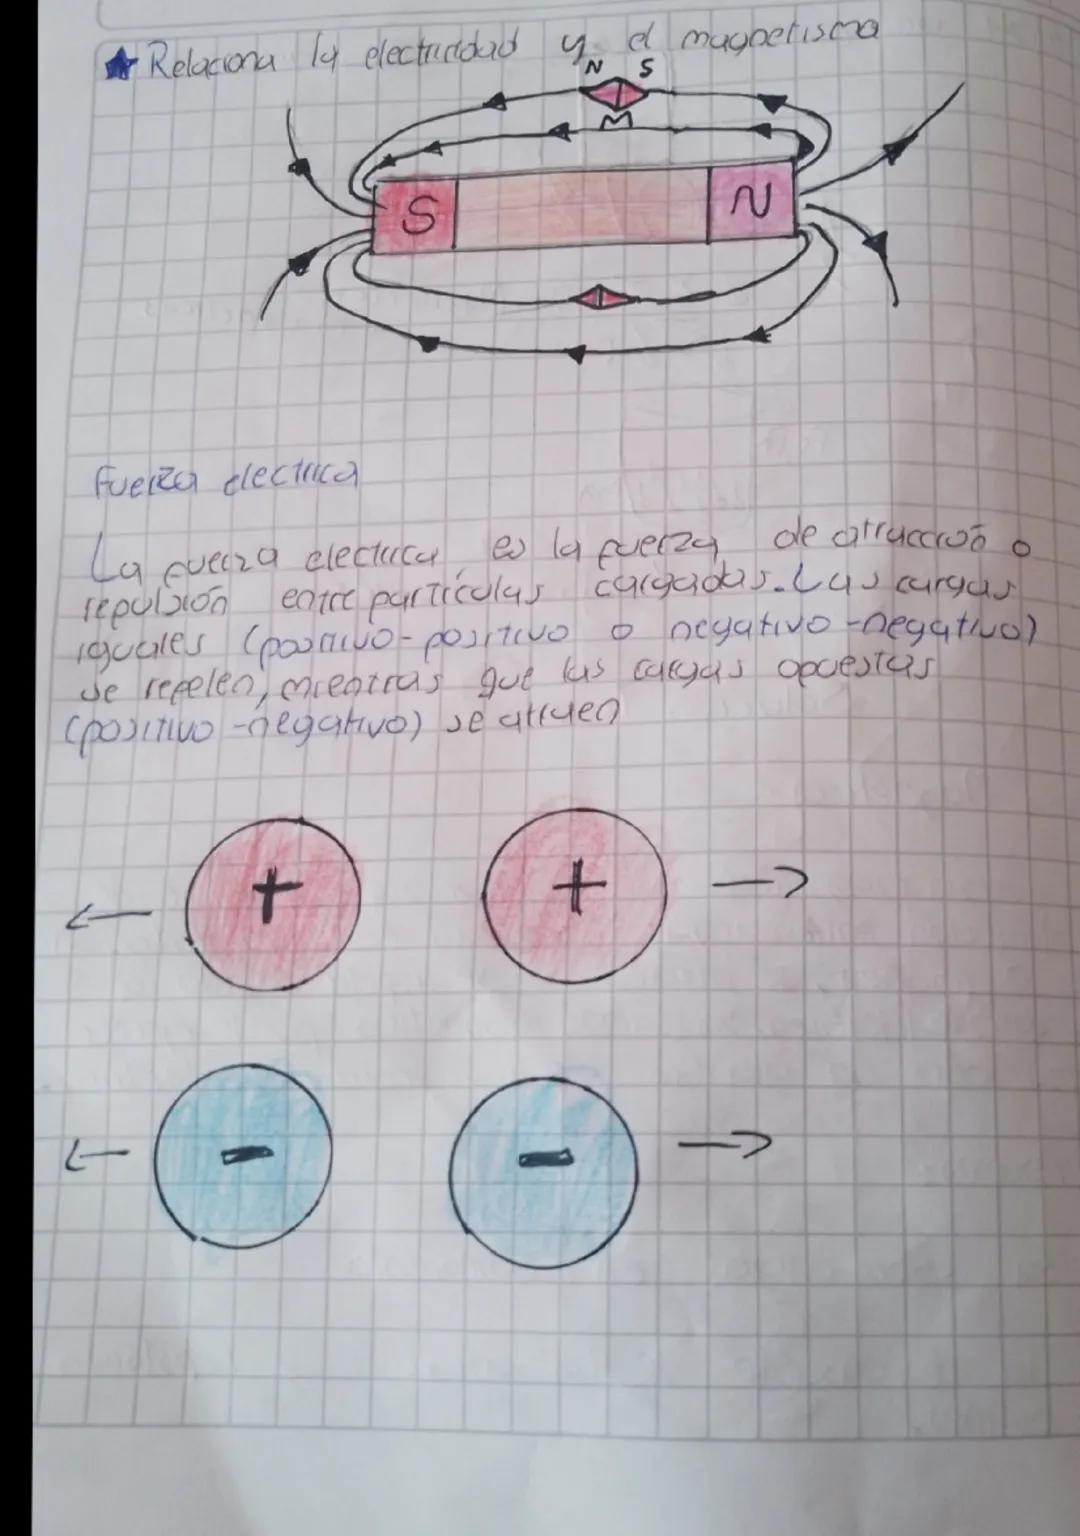 Relaciona la electricidad y el magnetismo
N S
M
S N
Fuerza electrica
La fuerza electrica es la fuerza de atracción o
repulsión entre partículas cargadas. Las cargas
iguales (positivo-positivo o negativo-negativo)
se repelen, mientras que las cargas opuestas
(positivo-negativo) se atraen
+ +
- -